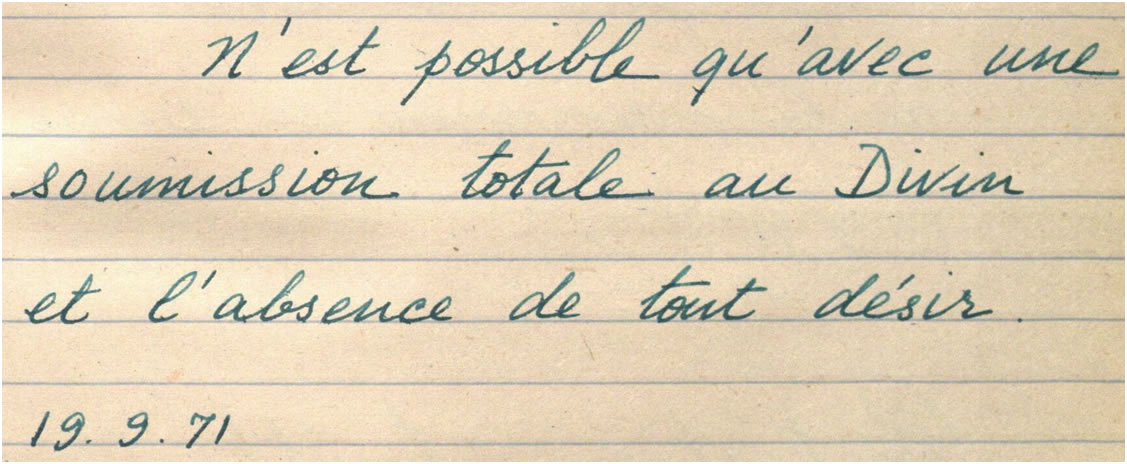 N'est possible qu'avec une
soumission totale au Divin
et l'absence de tout désir.
19.9.71